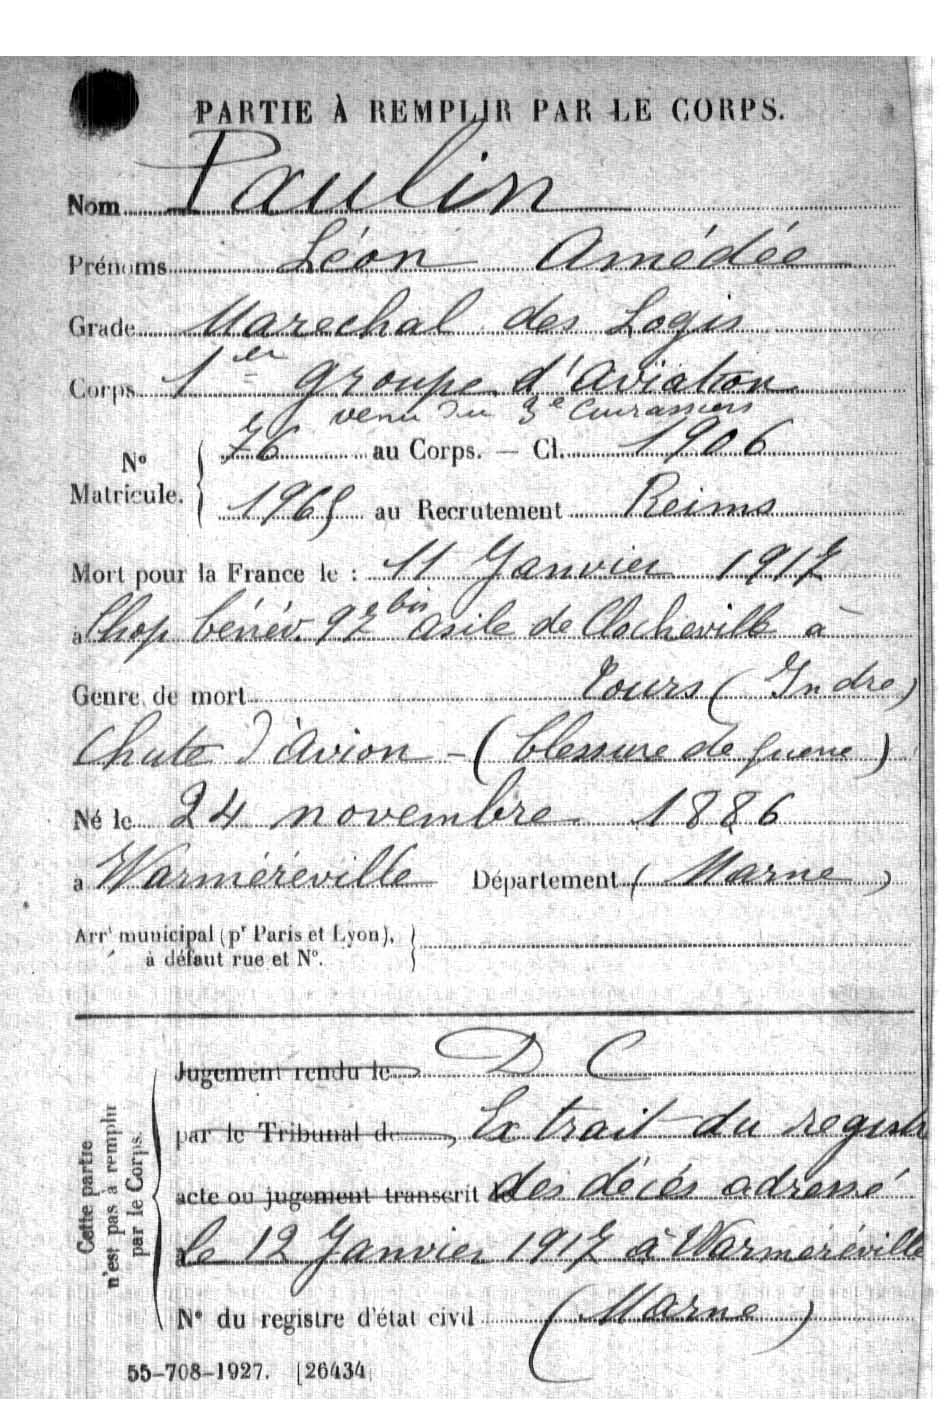 PARTIE À REMPLIR PAR LE CORPS.
Nom Paulin
Prénoms Léon Amédée
Grade Marechal des Logis
Corps 1er groupe d'aviation
venu du 3e Cuirassiers
No Matricule. 76 au Corps. — Cl. 1906
1965 au Recrutement Reims
Mort pour la France le : 11 Janvier 1917
à l'hop bénév. 97 bis asile de Clocheville à
Genre de mort Tours (Indre)
Chute d'avion - (blessure de guerre)
Né le 24 novembre 1886
à Warméréville Département (Marne)
Arrt municipal (pr Paris et Lyon),
à défaut rue et No.
Cette partie n'est pas à remplir par le Corps.
Jugement rendu le D C
par le Tribunal de Extrait du registre
acte ou jugement transcrit le des décès adressé
à le 12 Janvier 1917 à Warméréville
No du registre d'état civil (Marne)
55-708-1927. [26434]